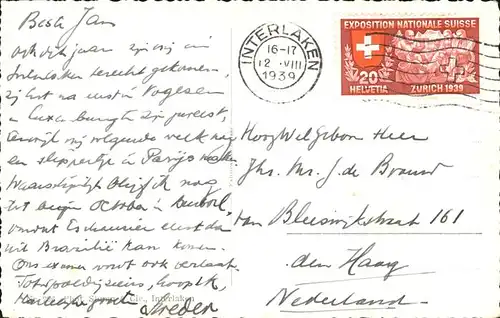 Beste Jan
Ook dit jaar zijn wij in
Interlaken terecht gekomen,
zij het na eerst in Vogesen
en Luxemburg te zijn geweest,
terwijl wij volgende week nog
een slippertje in Parijs maken
Waarschijnlijk blijf ik nog
tot begin October
omdat eerst dan
uit Brazilië kan komen.
Ons examen wordt ook verlaat.
Tot spoedig ziens, hoop ik
Hartelijke groeten,
INTERLAKEN
16-17
12.VIII
1939
EXPOSITION NATIONALE SUISSE
20
HELVETIA ZURICH 1939
HoogWelgeboren Heer
Jhr. Mr. J. de Brauw
van Bleiswijkstraat 161
den Haag
Nederland
Interlaken